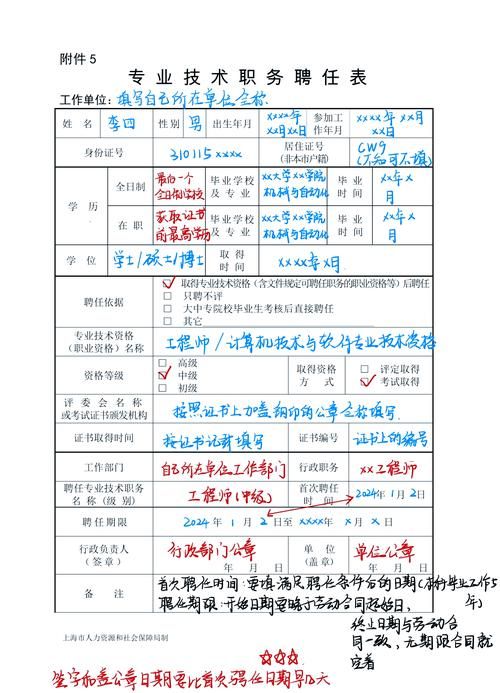 附件 5
专业技术职务聘任表
工作单位：填写自己所在单位全称
姓名 李四 性别 男 出生年月 xxxx年xx月xx日 参加工作年月 xxxx年xx月xx日
身份证号 310115xxxx 居住证号（非本市户籍） CW9（不知可不填）
学历 全日制 最后一个全日制学校 毕业学校及专业 xx大学xx学院机械与自动化 毕业时间 xx年x月
在职 获取证书的最高学历 毕业学校及专业 xx大学xx学院机械与自动化 毕业时间 xx年x月
学位 学士/硕士/博士 取得时间 xxxx年x月
聘任依据 ☑ 取得专业技术资格（含文件规定可聘任职务的职业资格等）后聘任
□ 只聘不评
□ 大中专院校毕业生考核后直接聘任
□ 其它
专业技术资格（职业资格）名称 工程师/计算机技术与软件专业技术资格
资格等级 □ 高级 ☑ 中级 □ 初级 取得资格方式 □ 评定取得 ☑ 考试取得
评委会名称或考试证书颁发机构 按照证书上加盖钢印的公章全称填写
证书取得时间 按证书记载填写 证书编号 证书上的编号
工作部门 自己所在单位工作部门 行政职务 xx工程师
聘任专业技术职务名称（级别） 工程师(中级) 首次聘任时间 2024年1月2日
聘任期限 2024年1月2日至xxxx年x月x日
行政负责人（签章） 行政部门公章 年 月 日 单位（盖章） 单位公章 年 月 日
备注 首次聘任时间：要填满足聘任条件后的日期(本科毕业工作5年)
聘任期限：开始日期要晚于劳动合同起始日，
终止日期与劳动合同一致，无期限合同就空着
上海市人力资源和社会保障局制
☆☆☆
签字和盖公章日期要比首次聘任日期早几天